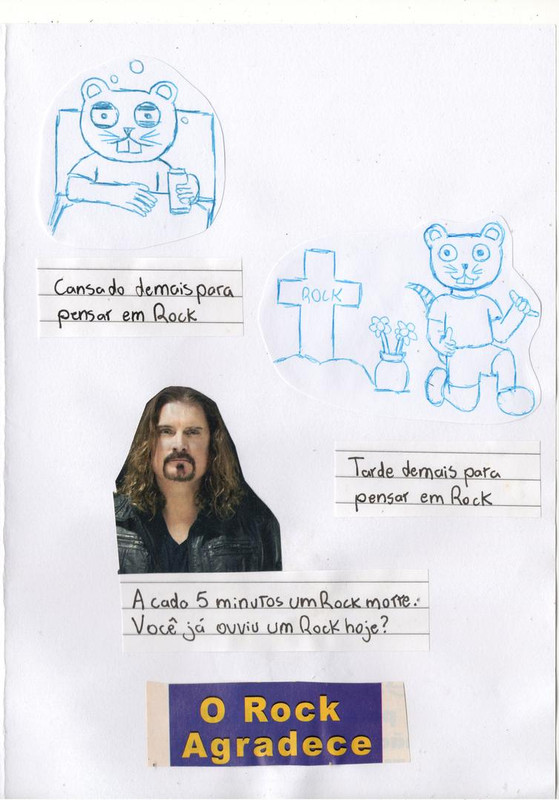 Cansado demais para
pensar em Rock
ROCK
Tarde demais para
pensar em Rock
A cado 5 minutos um Rock morre.
Você já ouviu um Rock hoje?
O Rock
Agradece